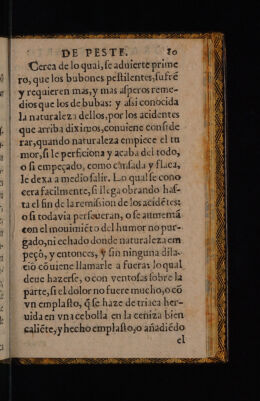 DE PESTE. 80
Cerca de lo qual, se aduierte prime
ro, que los bubones pestilentes, sufrẽ
y requieren mas, y mas asperos reme-
dios que los de bubas: y assi conocida
la naturaleza dellos, por los acidentes
que arriba diximos, conuiene conside
rar, quando naturaleza empiece el tu
mor, si le perficiona y acaba del todo,
o si empeçado, como cãsada y flaca,
le dexa a medio salir. Lo qual se cono
cera facilmente, si llega obrando has-
ta el fin de la remission de los acidẽtes:
o si todavia perseueran, o se aumentã
con el mouimiẽto del humor no pur-
gado, ni echado donde naturaleza em
peçò, y entonces, y sin ninguna dila-
ciõ cõuiene llamarle a fuera: lo qual
deue hazerse, o con ventosas sobre la
parte, si el dolor no fuere mucho, o cõ
vn emplasto, q̃ se haze de triaca her-
uida en vna cebolla en la ceniza bien
caliẽte, y hecho emplasto, o añadiẽdo
el